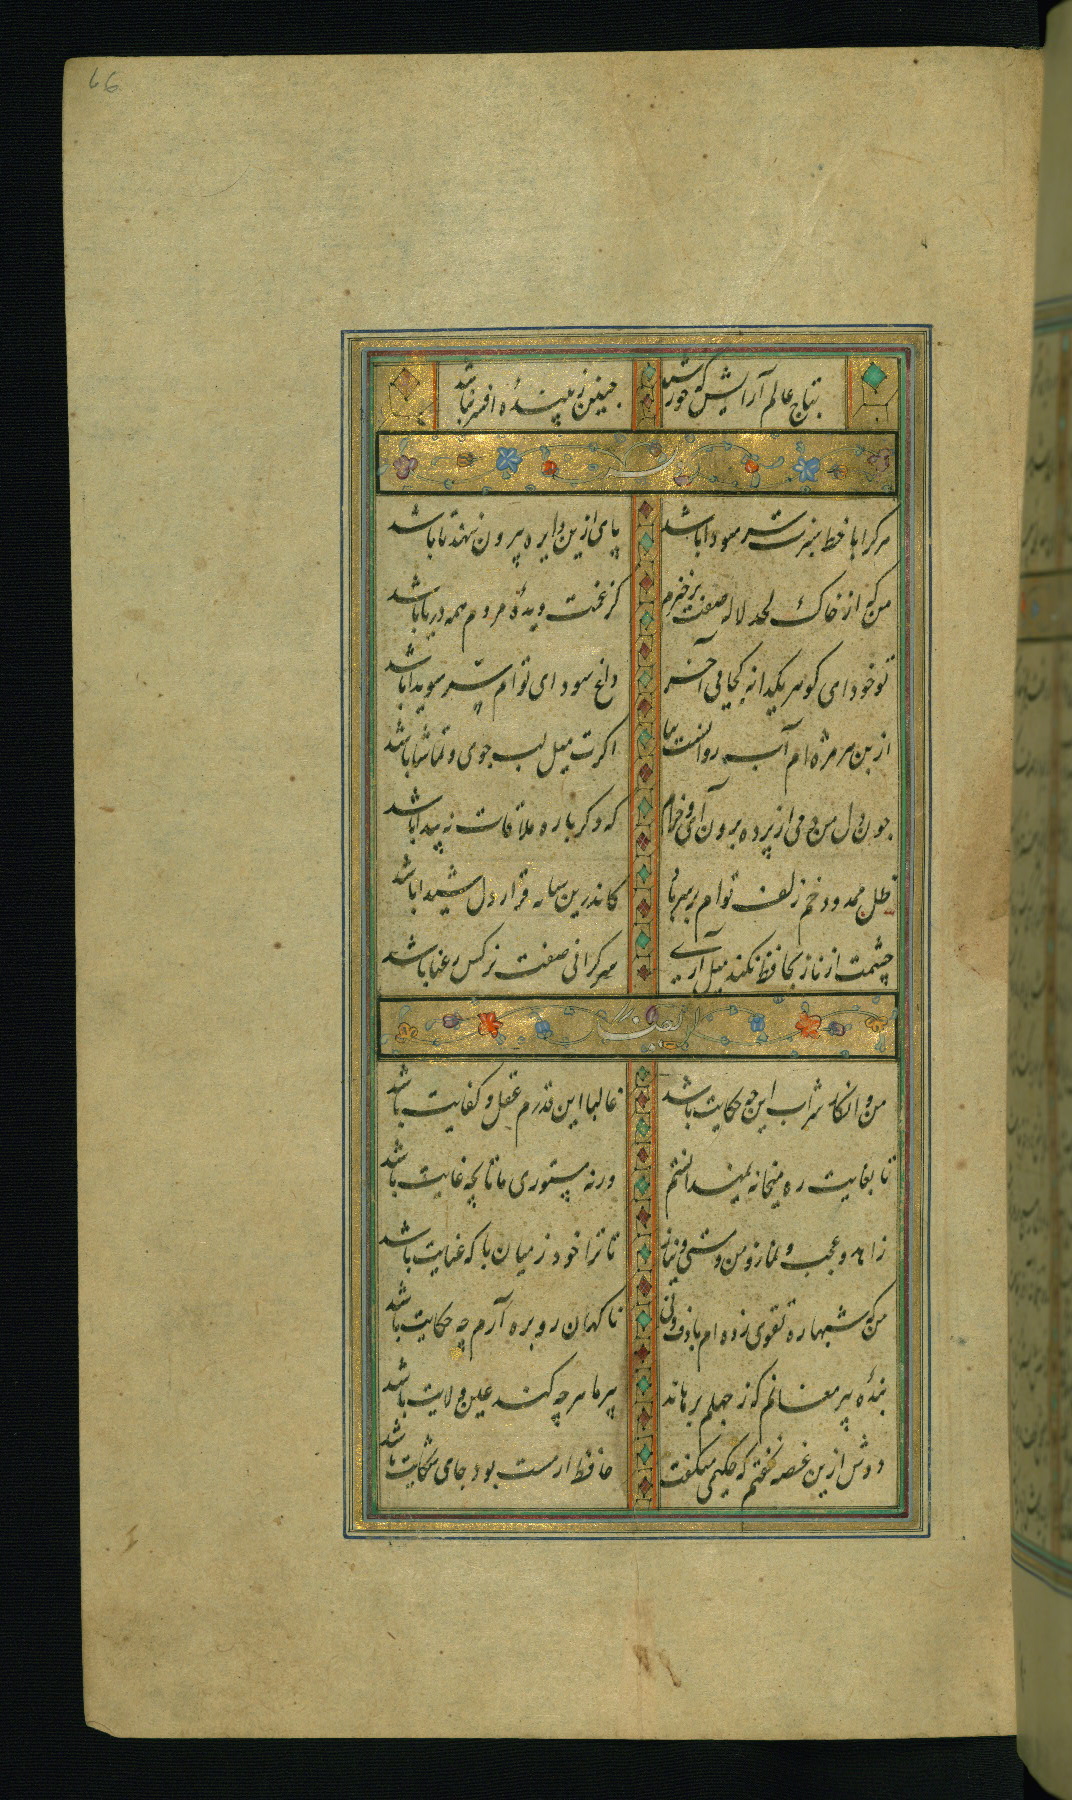 بتاج عالم آرایش که خورشید جنین زیبندهٔ افسر نباشد
هرکرا با خط سبزت سر سودا باشد پای ازین دایره بیرون ننهد تا باشد
من که از خاک لحد لاله صفت برخیزم کر غمت دیدهٔ مردم همه دریا باشد
تو خود ای کوهر یکدانه کجایی آخر داغ سودای توام سر سویدا باشد
از بن هر مژه ام آب روانست بیا اکرت میل لب جوی و تماشا باشد
جون دل من دمی از پرده برون آی و خرام که دکر باره ملاقات نه پیدا باشد
ظل ممدود خم زلف توام بر سر باد کاندرین سایه قرار دل شیدا باشد
چشمت از ناز بحافظ نکند میل آری سر کرانی صفت نرکس رعنا باشد
من و انکار شراب این چه حکایت باشد غالبا این قدرم عقل و کفایت باشد
تا بغایت ره میخانه نمیدانستم ورنه مستوری ما تا بچه غایت باشد
زاهد و عجب و نماز و من و مستی و نیاز تا ترا خود ز میان با که عنایت باشد
من که شبها ره تقوی زده ام با دف و نی ناکهان رو بره آرم چه حکایت باشد
بندهٔ پیر مغانم که ز جهلم برهاند پیر ما هرچه کند عین ولایت باشد
دوش ازین غصه نخفتم که حکیمی میکفت حافظ ار مست بود جای شکایت باشد